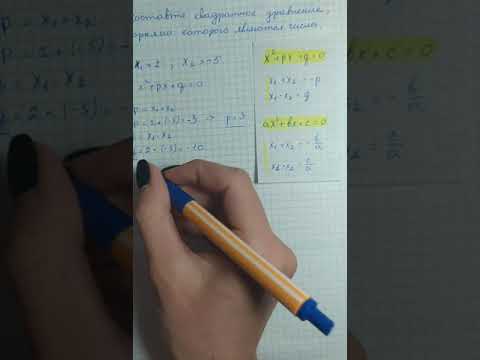 составьте квадратное уравнение,
корнями которого являются числа.
x₁ = 2 , x₂ = -5
x² + px + q = 0
p = x₁ + x₂
p = 2 + (-5) = -3 → p = 3
= x₁ · x₂
= 2 · (-5) = -10
x² + px + q = 0
x₁ + x₂ = -p
x₁ · x₂ = q
ax² + bx + c = 0
x₁ + x₂ = - b/a
x₁ · x₂ = c/a